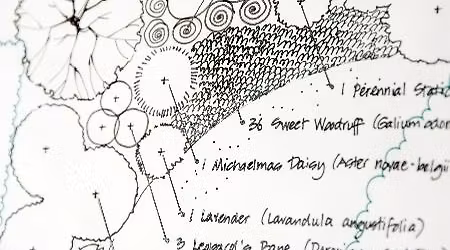 1 Perennial Static
36 Sweet Woodruff (Galium odor
1 Michaelmas Daisy (Aster novae-belgii
1 Lavender (Lavandula angustifolia)
3 Leopard's Bane (Doron